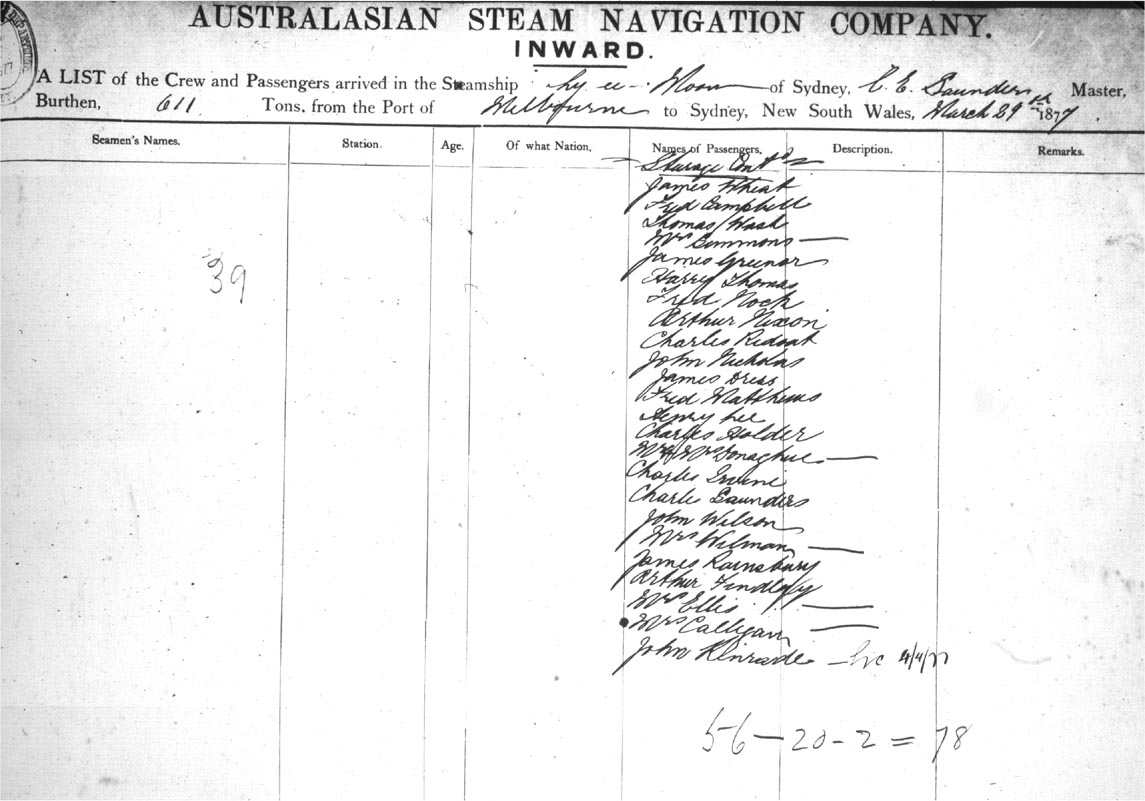 AUSTRALASIAN STEAM NAVIGATION COMPANY.
INWARD.
A LIST of the Crew and Passengers arrived in the Steamship Ly-ee-Moon of Sydney, C. E. Saunders Master,
Burthen, 611 Tons. from the Port of Melbourne to Sydney, New South Wales, March 29th 1877
Seamen's Names. Station. Age. Of what Nation, Names of Passengers, Description. Remarks.
Steerage Contd
James Wheat
Fred Campbell
Thomas Wash
Mrs Simmons —
James Greenor
Harry Thomas
Fred Nock
Arthur Nixon
Charles Ridout
John Nicholas
James Dress
Fred Matthews
Henry Lee
Charles Holder
Mr & Mrs Donaghue —
Charles Irvine
Charle Saunders
John Wilson
Mrs Wilman —
James Rainsbury
Arthur Findlay
Mrs Ellis —
Mrs Calligan —
John Kinrade — 4/4/77
39
56 — 20 - 2 = 78